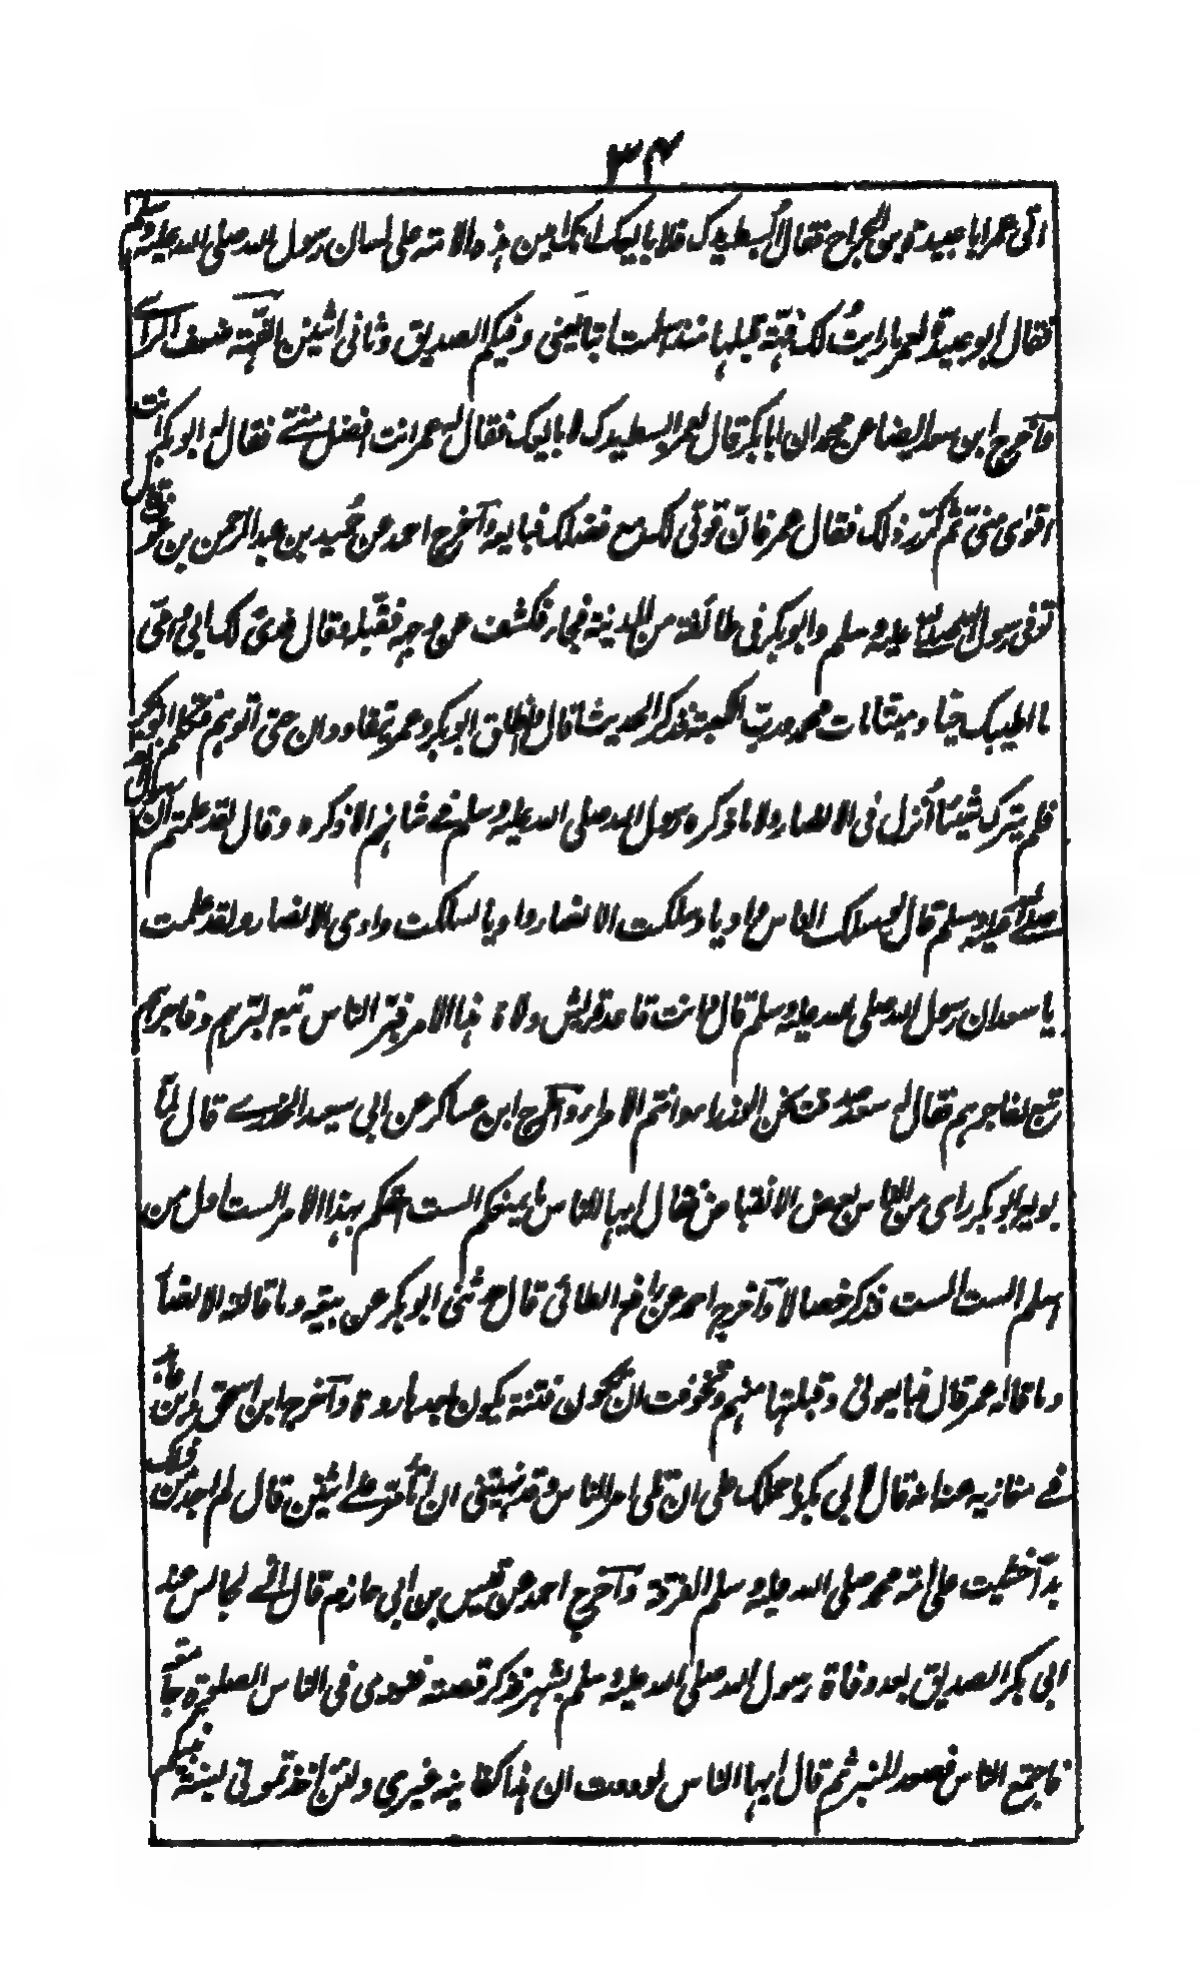 ٣٤
اتى عمر ابا عبيدة بن الجراح فقال ابسط يدك فلابايعك انك امين هذه الامة على لسان رسول الله صلى الله عليه وسلم
فقال ابو عبيدة لعمر ما رايتُ لك فهّة قبلها منذ اسلمت اتبايعني وفيكم الصديق وثاني اثنين الفهّة ضعف الراے
وآخرج ابن سعد ايضا عن محمد ان ابا بكر قال لعمر ابسط يدك لابايعك فقال له عمر انت افضل منے فقال له ابو بكر انت
اقوى منى ثم كرّر ذلك فقال عمر فان قوتى لك مع فضلك فبايعه وآخرج احمد عن حُميد بن عبد الرحمن بن عوف قال
توفى رسول الله صلى الله عليه وسلم وابو بكر فى طائفة من المدينة فجاء فكشف عن وجهه فقبله وقال فدى لك ابى وامى
ما اطيبك حيًا وميتًا مات محمد ورب الكعبة فذكر الحديث قال وانطلق ابو بكر وعمر يتقاودان حتى اتوهم فتكلم ابو بكر
فلم يترك شيئا اُنزل فى الانصار ولا ما ذكره رسول الله صلى الله عليه وسلم فے شانهم الا ذكره وقال لقد علمتم ان رسول الله
صلے الله عليه وسلم قال لو سلك الناس واديا وسلكت الانصار واديا لسلكت وادى الانصار ولقد علمت
يا سعد ان رسول الله صلى الله عليه وسلم قال وانت قاعد قريش ولاة هذا الامر فبرّ الناس تبع لبرّهم وفاجرهم
تبع لفاجرهم فقال له سعد صدقت نحن الوزراء وانتم الامراء وآخرج ابن عساكر عن ابى سعيد الخدرے قال لمّا
بويع ابو بكر راى من الناس بعض الانقباض فقال ايها الناس ما يمنعكم الست احقكم بهذا الامر الست اول من
اسلم الست الست فذكر خصالا وآخرج احمد عن رافع الطائى قال حدثنى ابو بكر عن بيعته وما قالته الانصار
وما قاله عمر قال فبايعونى وقبلتها منهم وتخوفت ان تكون فتنة يكون بعدها ردة وآخرج ابن اسحق وابن عائد
فے مغازيه عنه انه قال لابى بكر ما حملك على ان تلى امر الناس وقد نهيتنى ان اتأمّر علے اثنين قال لم اجد من ذلك
بدّا خشيت على امة محمد صلى الله عليه وسلم الفرقة وآخرج احمد عن قيس بن ابى حازم قال انے لجالس عند
ابى بكر الصديق بعد وفاة رسول الله صلى الله عليه وسلم بشهر فذكر قصته فنودى فى الناس الصلوة جامعة
فاجتمع الناس فصعد المنبر ثم قال ايها الناس لوددت ان هذا كفانيه غيرى ولئن اخذتمونى بسنة نبيكم